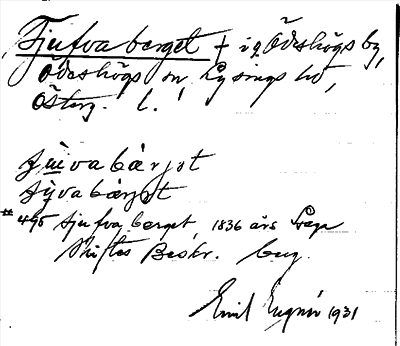 Tjufva berget + i q Ödeshögs by,
Ödeshögs sn, Lysings hd,
Österg. l.
juvabärjot
jyvabärjot
# 495 Tjufva berget, 1836 års Laga
Skiftes Beskr. berg
Emil 1931